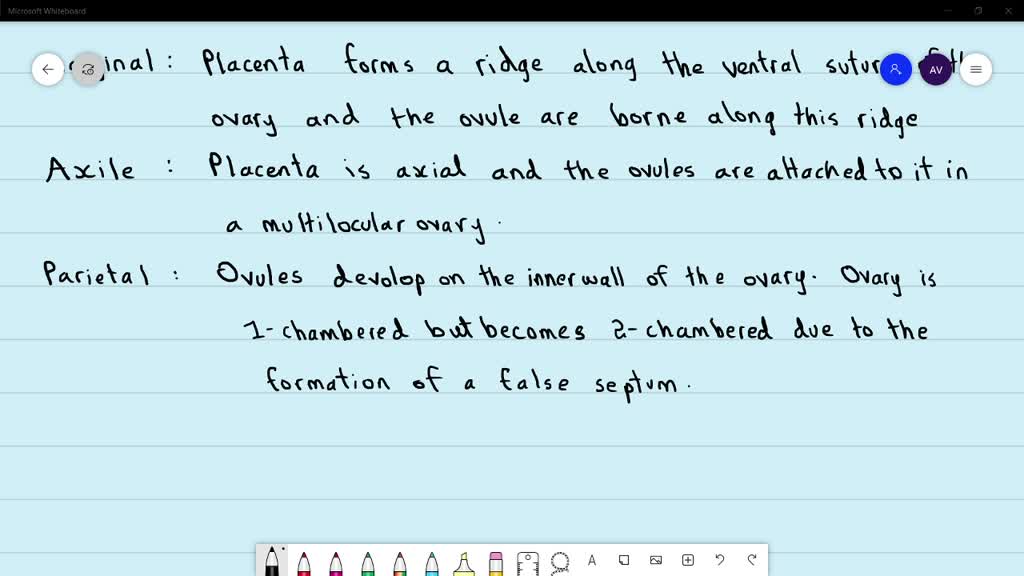 Microsoft Whiteboard
inal : Placenta forms a ridge along the ventral
AV
ovary and the ovule are borne along this ridge
Axile : Placenta is axial and the ovules are attached to it in
a multilocular ovary.
Parietal : Ovules devolop on the inner wall of the ovary. Ovary is
1-chambered but becomes 2-chambered due to the
formation of a false septum.
A